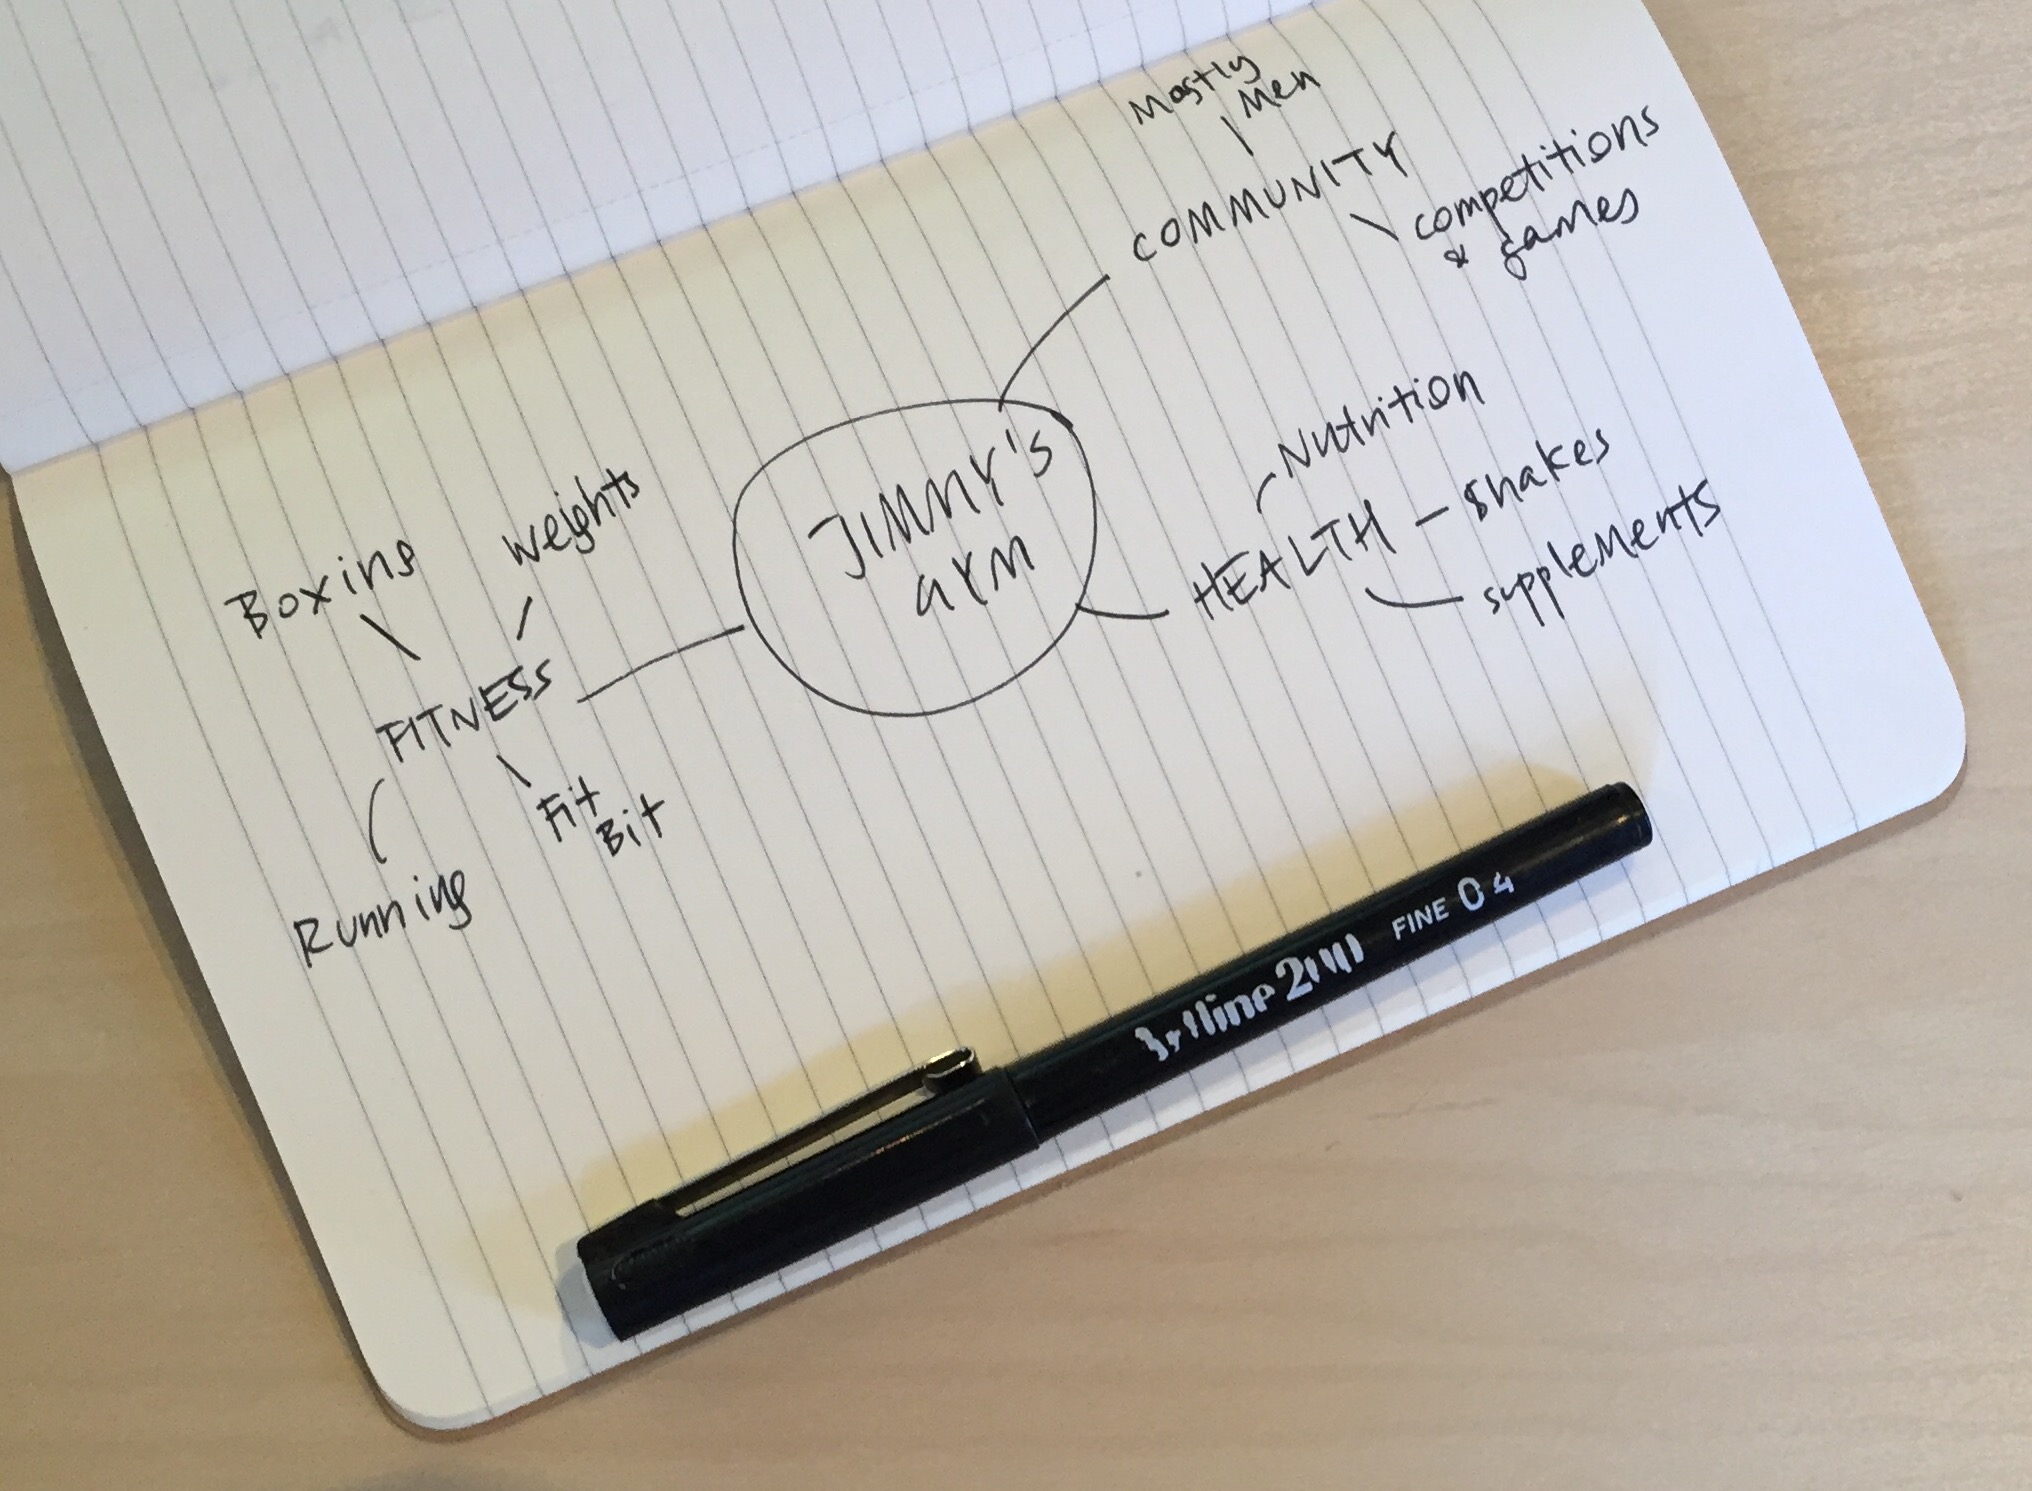 Mostly
Men
COMMUNITY
competitions
& games
JIMMY'S
GYM
Nutrition
HEALTH
Shakes
supplements
Boxing
weights
FITNESS
Fit
Bit
Running
Artline 200 FINE 0.4